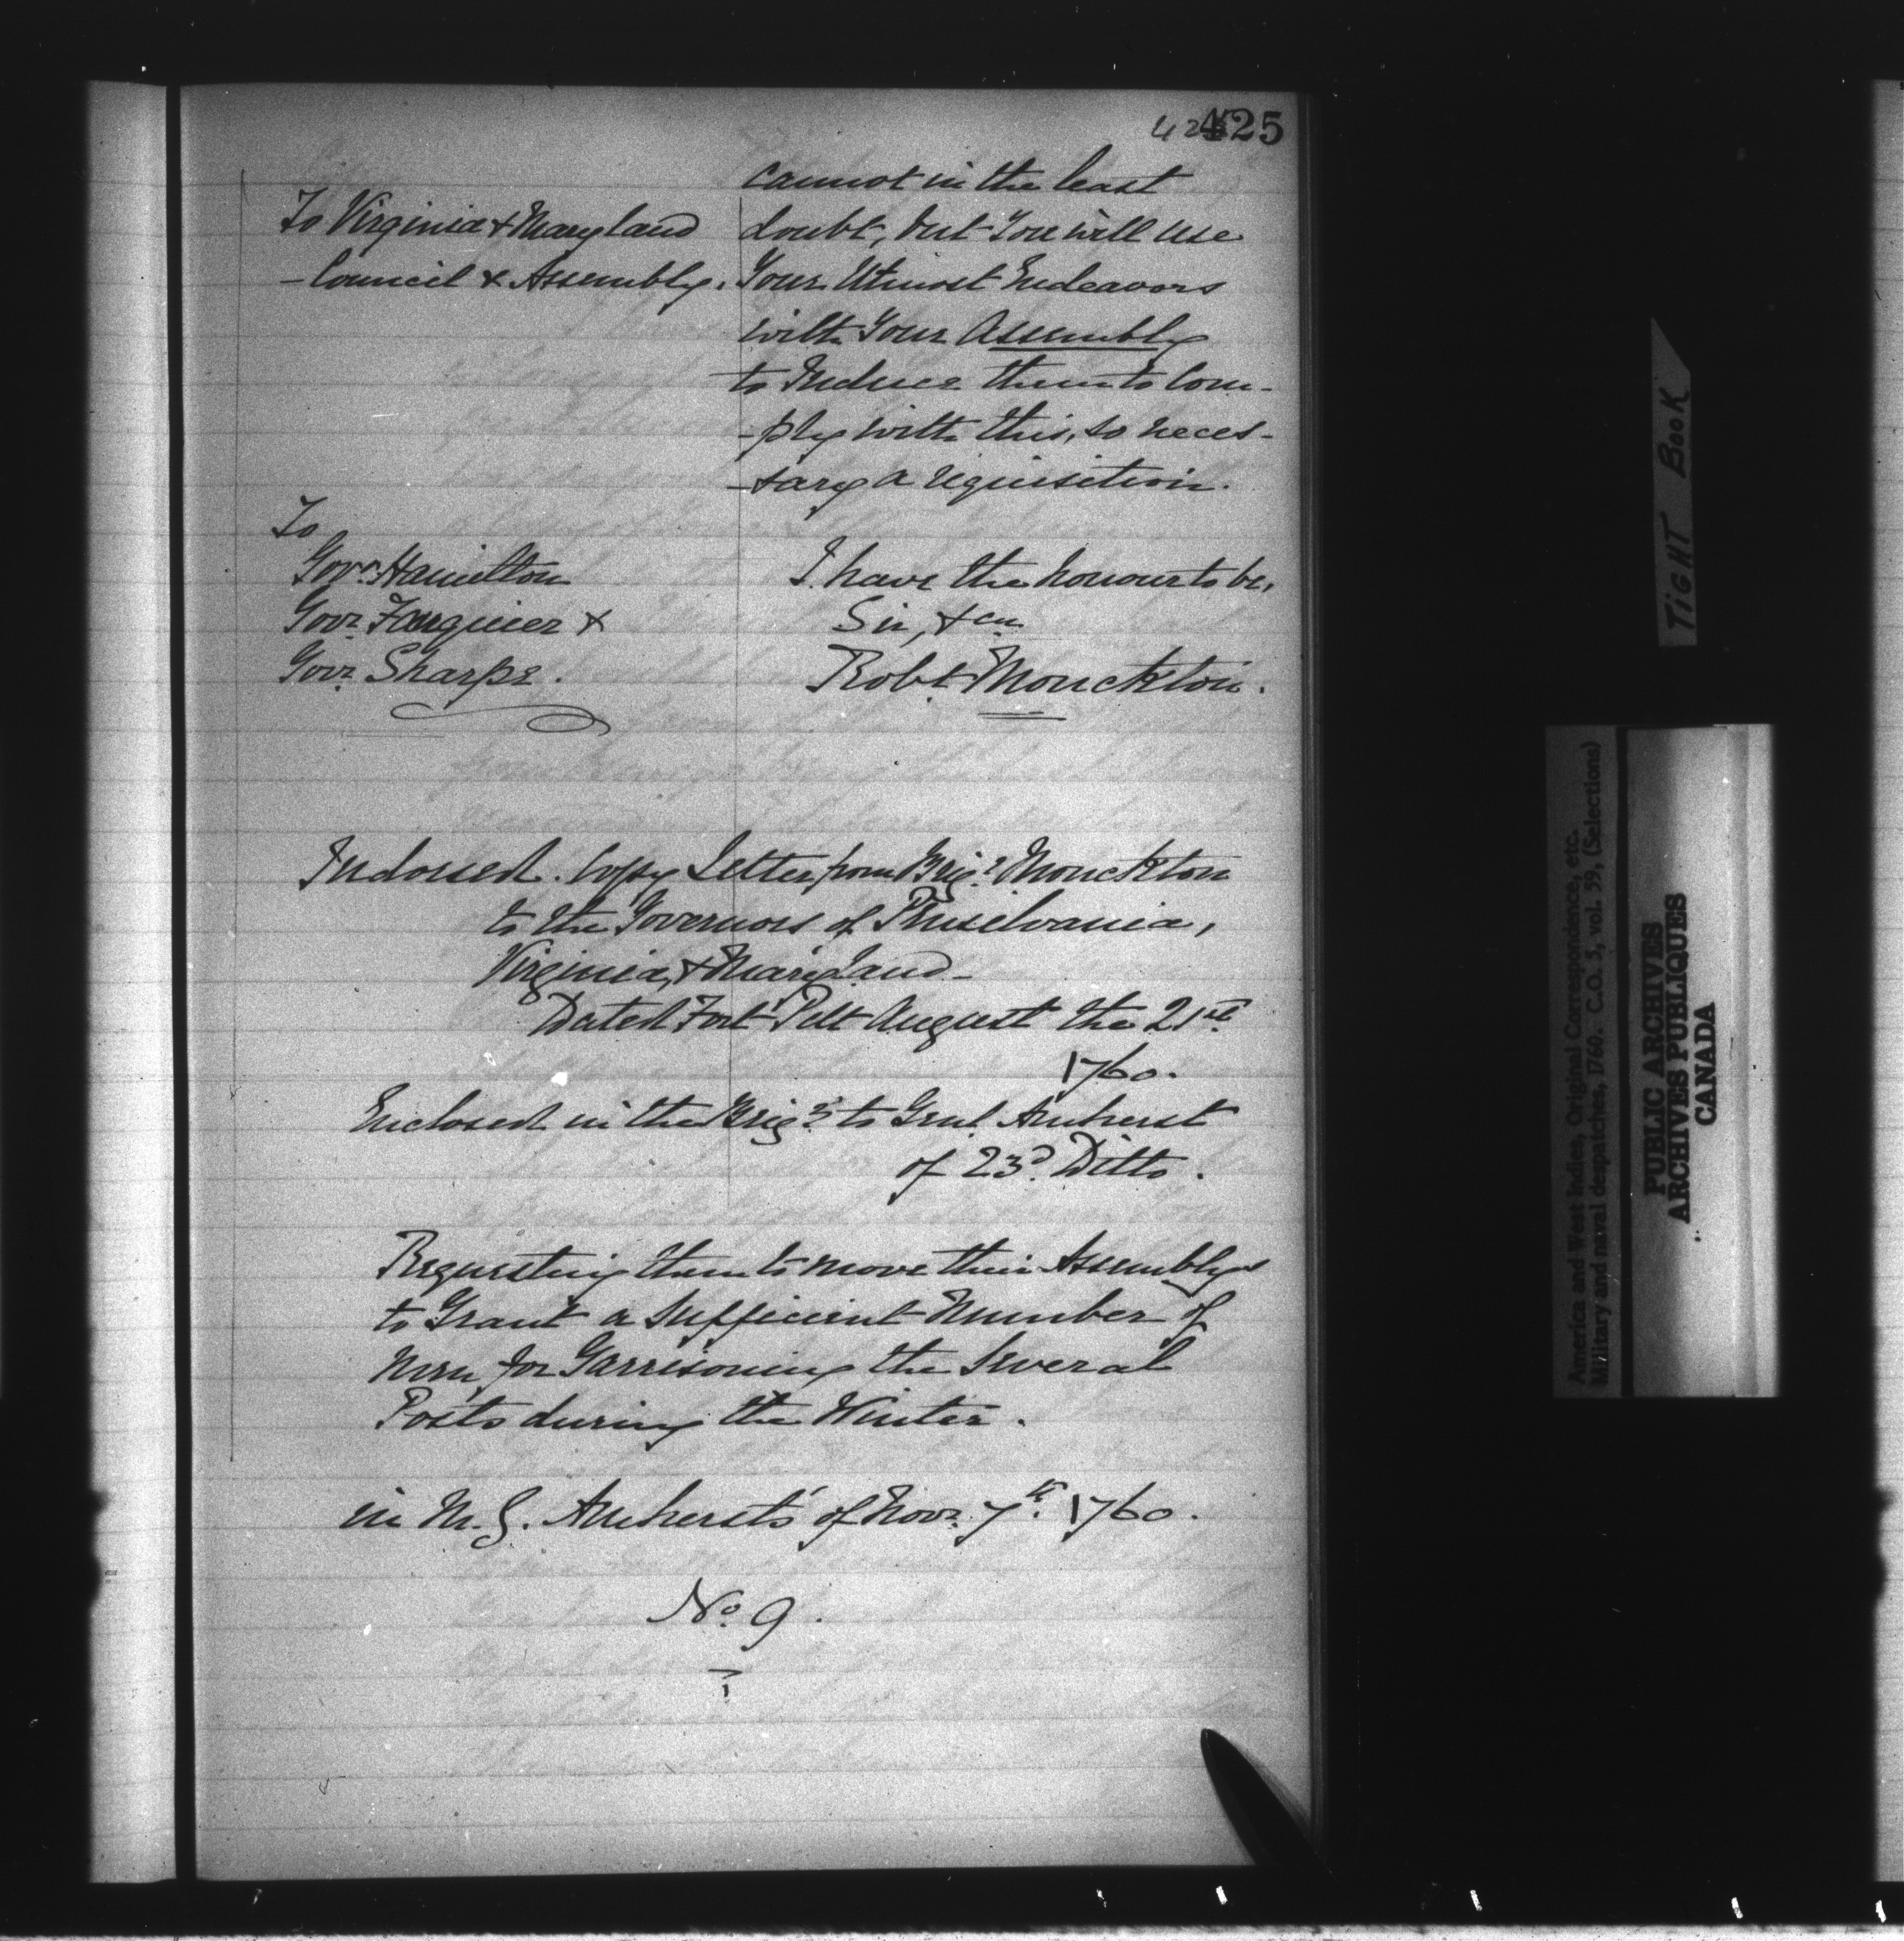 425
cannot in the least
To Virginia & Maryland
doubt, but You will use
- Council & Assembly.
Your Utmost Endeavors
with Your Assembly
to Induce them to Com-
-ply with this, so neces-
-sary a requisition.
To
Govr. Hamilton
I have the honour to be,
Govr. Fauquier &
Sir, &ca
Govr. Sharpe.
Robt. Monckton.
Indorsed. Copy Letter from Brigr. Monckton
to the Governors of Pensilvania,
Virginia, & Maryland -
Dated Fort Pitt August the 21st
1760.
Enclosed in the Brigr's to Genl. Amherst
of 23d. Ditto.
Requesting them to move their Assemblys
to Grant a Sufficient Number of
Men, for Garrisoning the Several
Posts during the Winter.
in M. G. Amherst's of Novr. 7th. 1760.
No. 9.
TIGHT BOOK
America and West Indies, Original Correspondence, etc.
Military and naval despatches, 1760. C.O. 5, vol. 59, (Selections)
PUBLIC ARCHIVES
ARCHIVES PUBLIQUES
CANADA